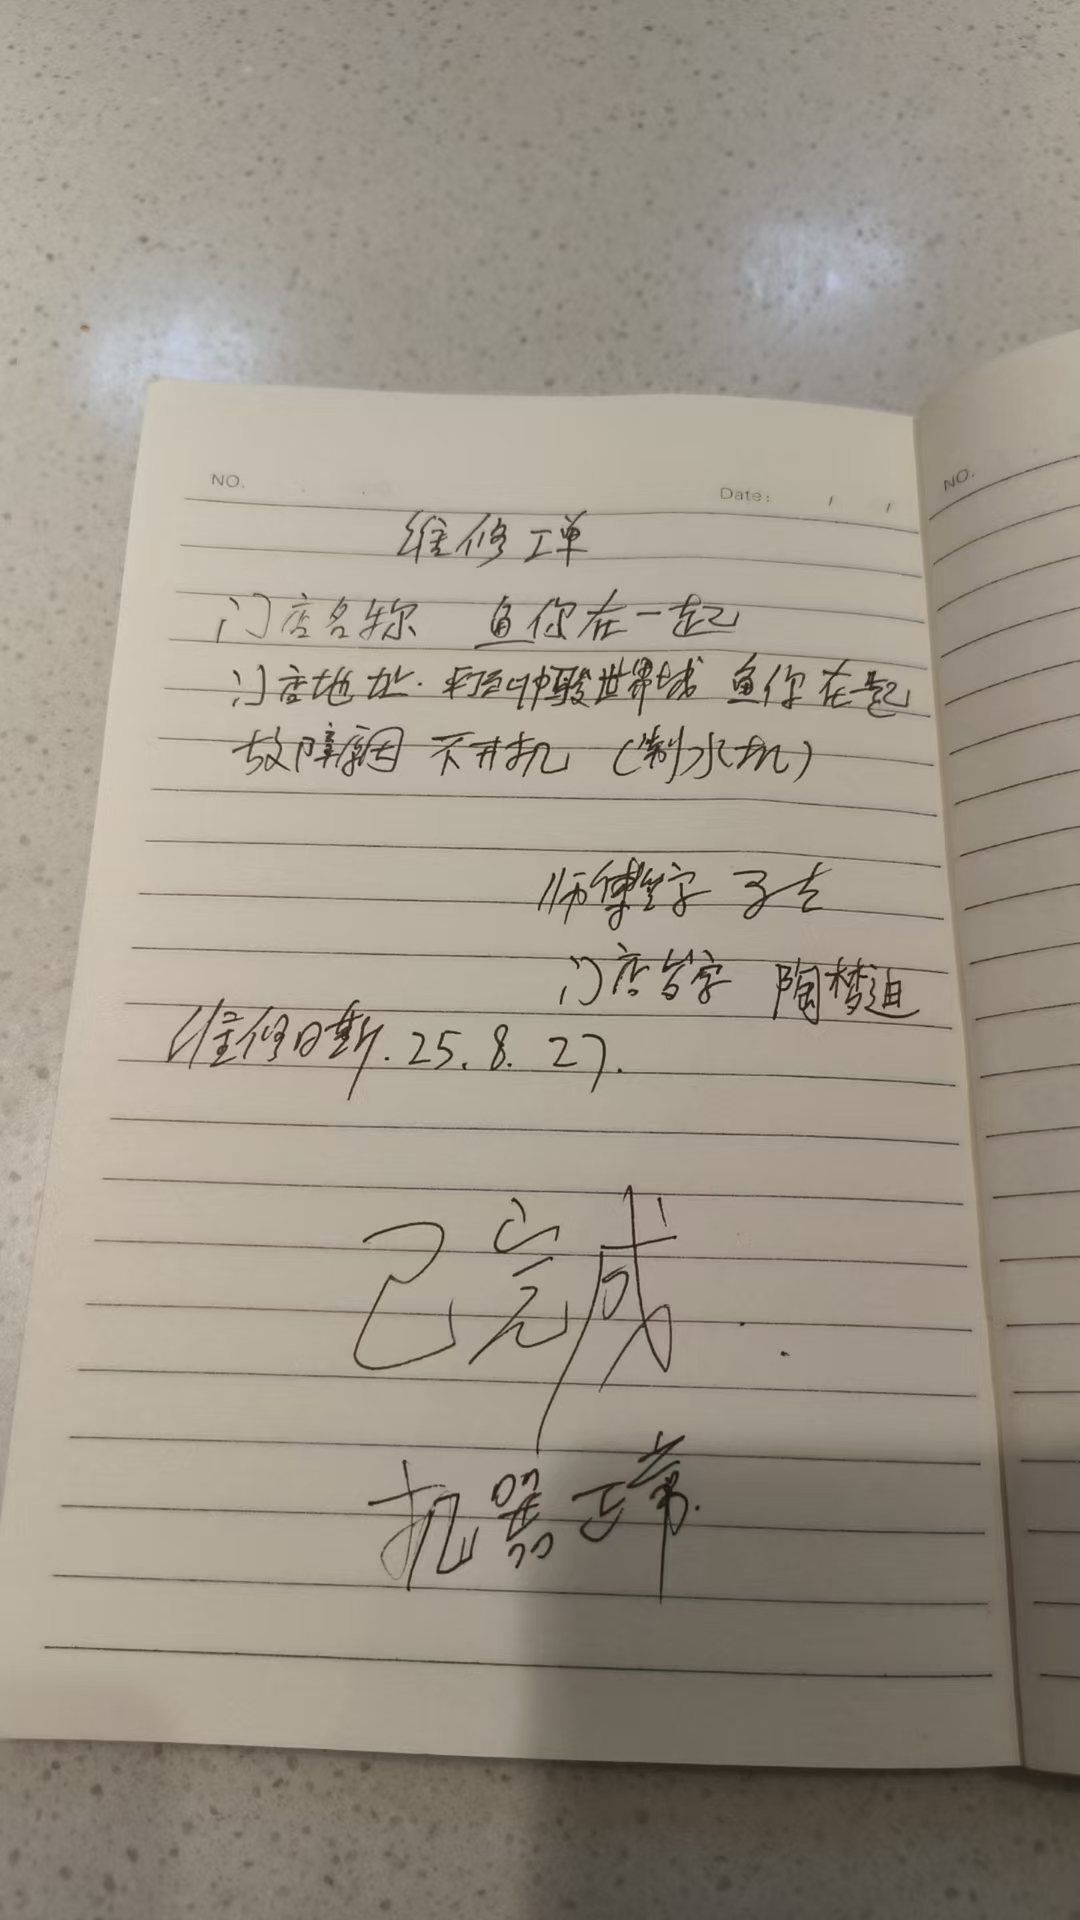 NO.
Date: / /
NO.
维修工单
门店名称 鱼你在一起
门店地址. 世界城 鱼你在一起
故障原因 不开机 (制冰机)
师傅签字
门店签字 陶梦迪
维修日期. 25. 8. 27.
已完成.
机器正常.